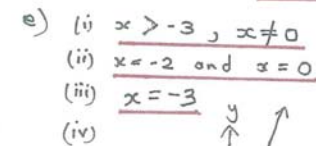 e) (i) x > -3 , x ≠ 0
(ii) x = -2 and x = 0
(iii) x = -3
(iv)
y